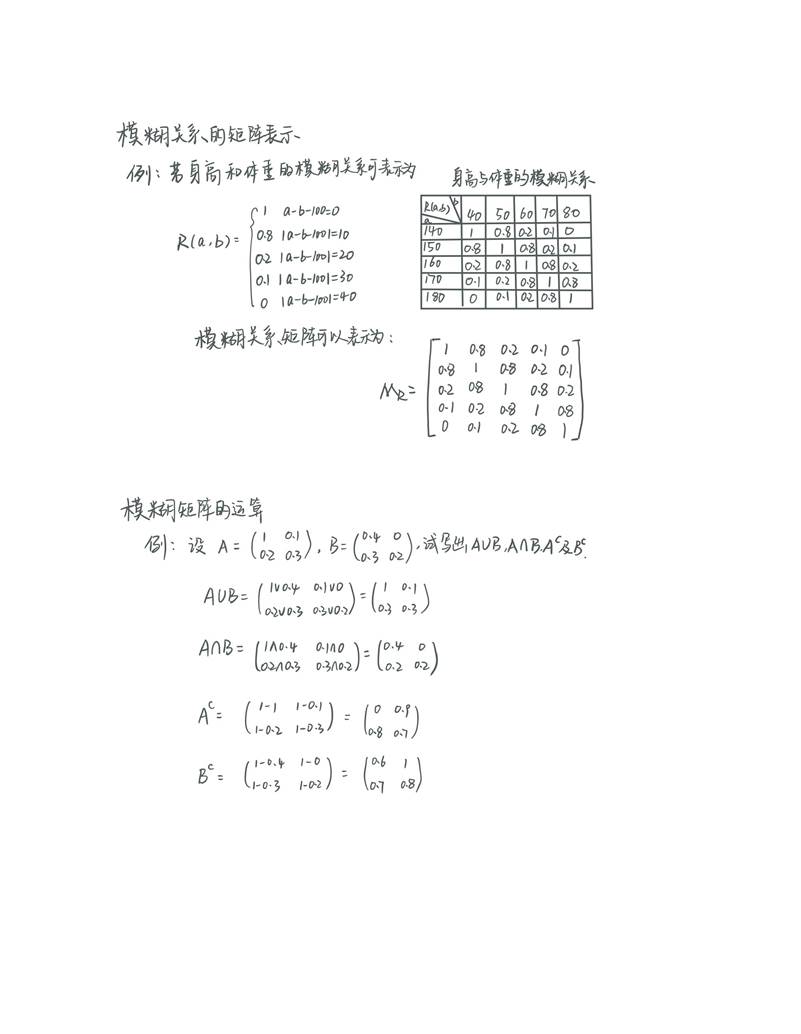 模糊关系的矩阵表示
例：若身高和体重的模糊关系可表示为
R(a,b)=
{ 1 a-b-100=0
0.8 |a-b-100|=10
0.2 |a-b-100|=20
0.1 |a-b-100|=30
0 |a-b-100|=40
身高与体重的模糊关系
R(a,b) b a 40 50 60 70 80
140 1 0.8 0.2 0.1 0
150 0.8 1 0.8 0.2 0.1
160 0.2 0.8 1 0.8 0.2
170 0.1 0.2 0.8 1 0.8
180 0 0.1 0.2 0.8 1
模糊关系矩阵可以表示为：
M_R=
[ 1 0.8 0.2 0.1 0
0.8 1 0.8 0.2 0.1
0.2 0.8 1 0.8 0.2
0.1 0.2 0.8 1 0.8
0 0.1 0.2 0.8 1 ]
模糊矩阵的运算
例：设 A=(1 0.1 / 0.2 0.3), B=(0.4 0 / 0.3 0.2),试写出A∪B,A∩B,A^c及B^c.
A∪B=(1∨0.4 0.1∨0 / 0.2∨0.3 0.3∨0.2)=(1 0.1 / 0.3 0.3)
A∩B=(1∧0.4 0.1∧0 / 0.2∧0.3 0.3∧0.2)=(0.4 0 / 0.2 0.2)
A^c=(1-1 1-0.1 / 1-0.2 1-0.3)=(0 0.9 / 0.8 0.7)
B^c=(1-0.4 1-0 / 1-0.3 1-0.2)=(0.6 1 / 0.7 0.8)